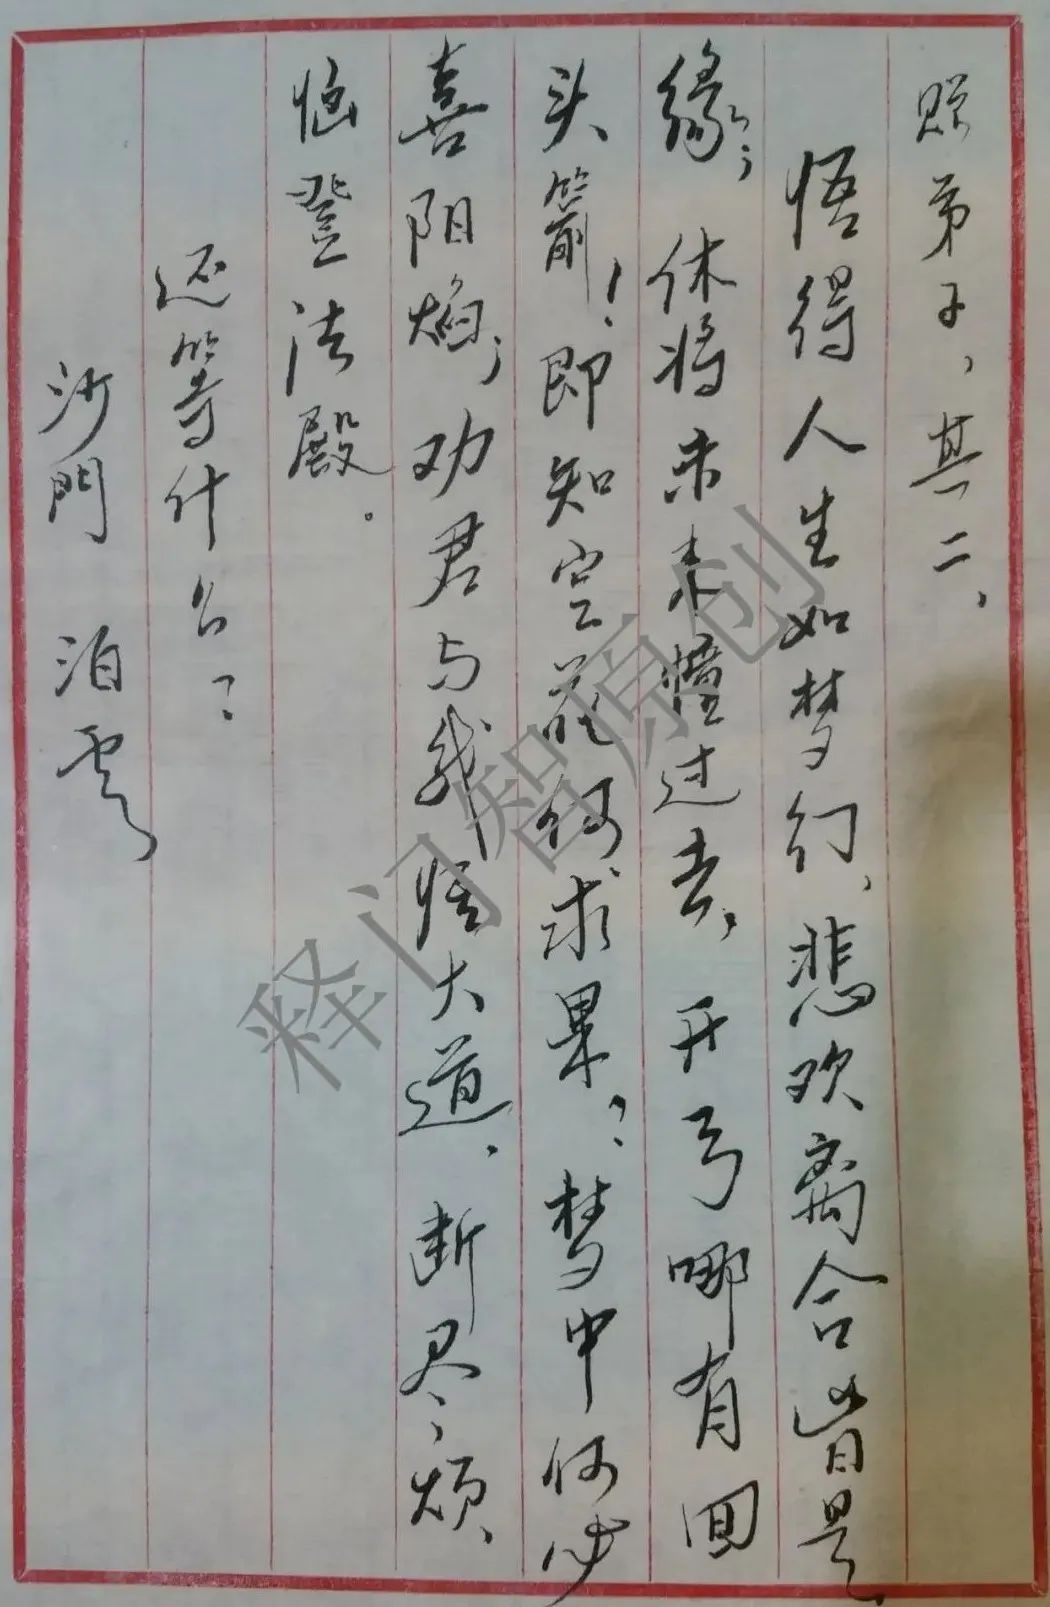 赠弟子，其二、
悟得人生如梦幻、悲欢离合皆是
缘；休将未来憧过去，开弓哪有回
头箭！即知空花何求果？梦中何必
喜阳焰；劝君与我悟大道、断尽烦
恼登法殿。
还等什么？
沙門 泊雲
释门智原创